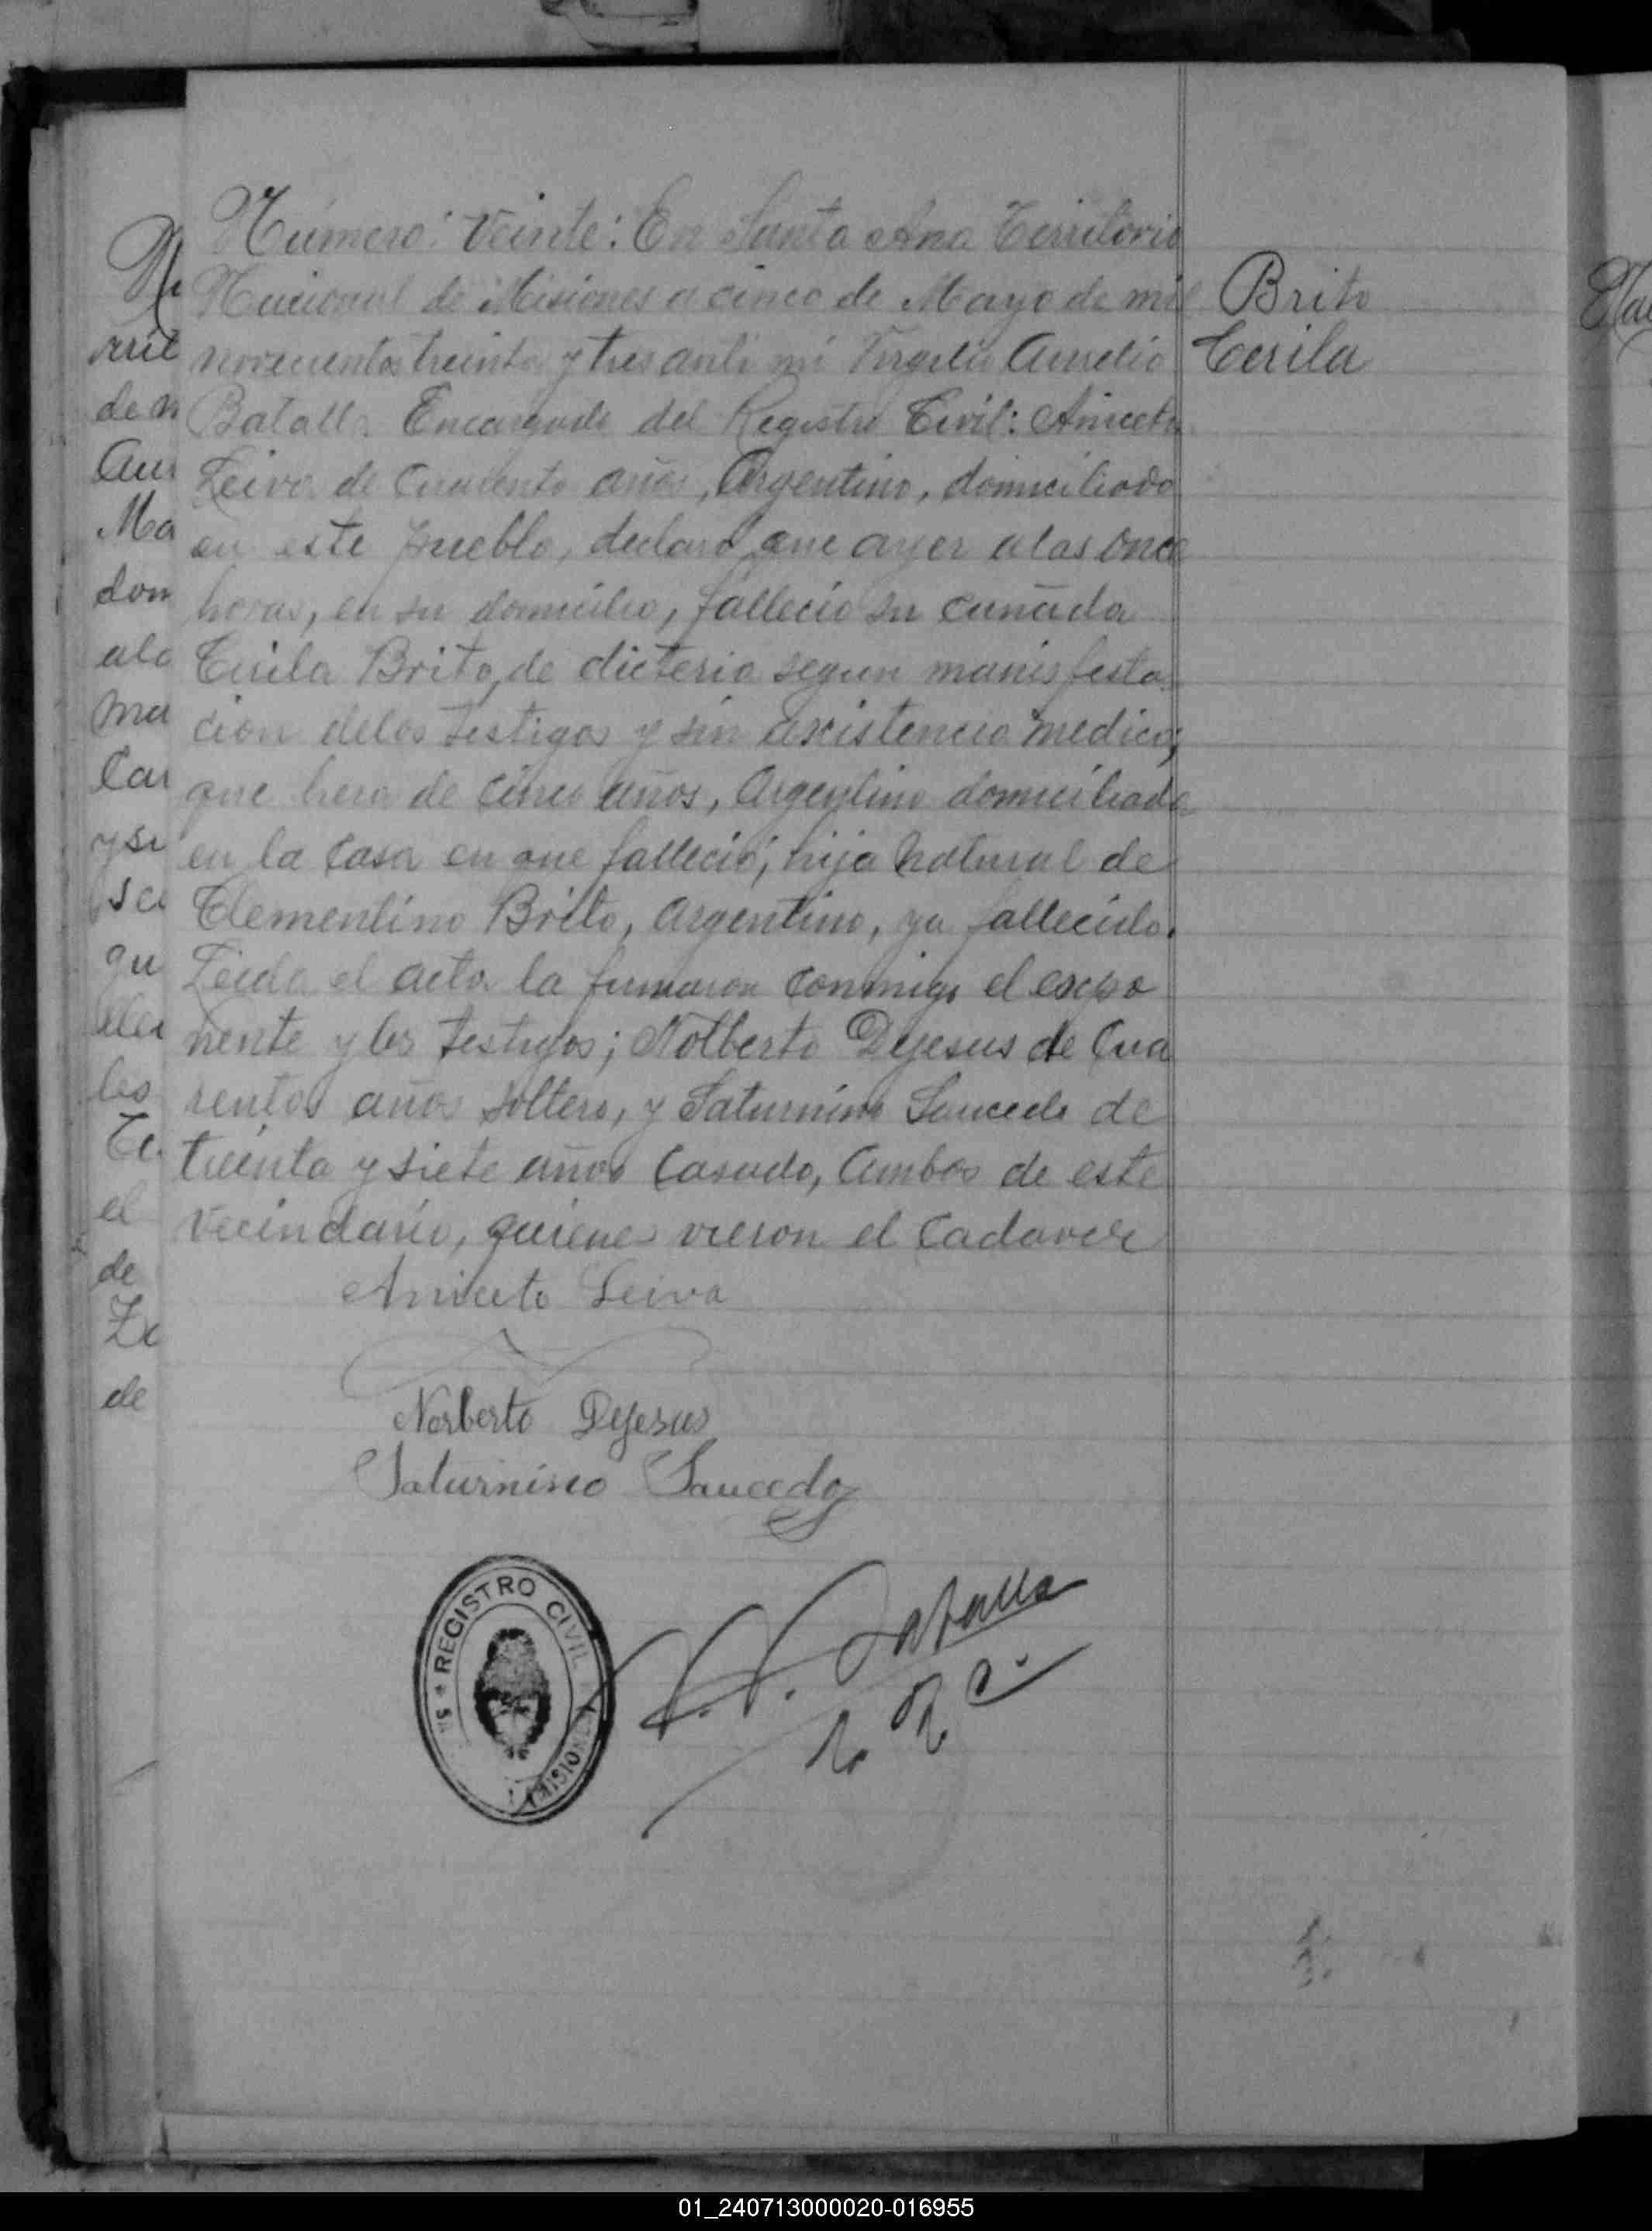 Número: Veinte: En Santa Ana Territorio
Nacional de Misiones a cinco de Mayo de mil
novecientos treinta y tres anti mi Virgilio Aurelio
Batalla Encargado del Registro Civil: Aniceto
Leiva de Cuarenta años, Argentino, domiciliado
en este pueblo, declaró que ayer a las once
horas, en su domicilio, fallecio su cuñada
Cirila Brito, de dicteria segun manisfesta
cion delos testigos y sin axistencia medica,
que hera de cinco años, Argentina domiciliada
en la casa en que falleció; hija natural de
Clementino Brito, argentino, ya fallecido.
Leida el acta la firmaron conmigo el expo
nente y los testigos; Nolberto Dejesus de Cua
renta años soltero, y Saturnino Saucedo de
treinta y siete años Casado, Ambos de este
vecindario, quienes vieron el Cadaver
Brito
Cerila
Aniceto Leiva
Norberto Dejesus
Saturnino Saucedo
REGISTRO CIVIL
MISIONES
V. A. Batalla
01_240713000020-016955